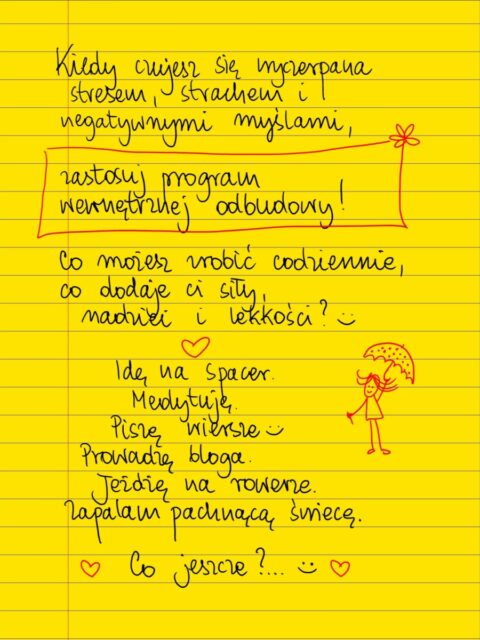 Kiedy czujesz się wyczerpana
stresem, strachem i
negatywnymi myślami,
zastosuj program
wewnętrznej odbudowy!
Co możesz zrobić codziennie,
co dodaje ci siły,
nadziei i lekkości? :)
Idę na spacer.
Medytuję.
Piszę wiersze :)
Prowadzę bloga.
Jeżdżę na rowerze.
Zapalam pachnącą świecę.
Co jeszcze?... :)